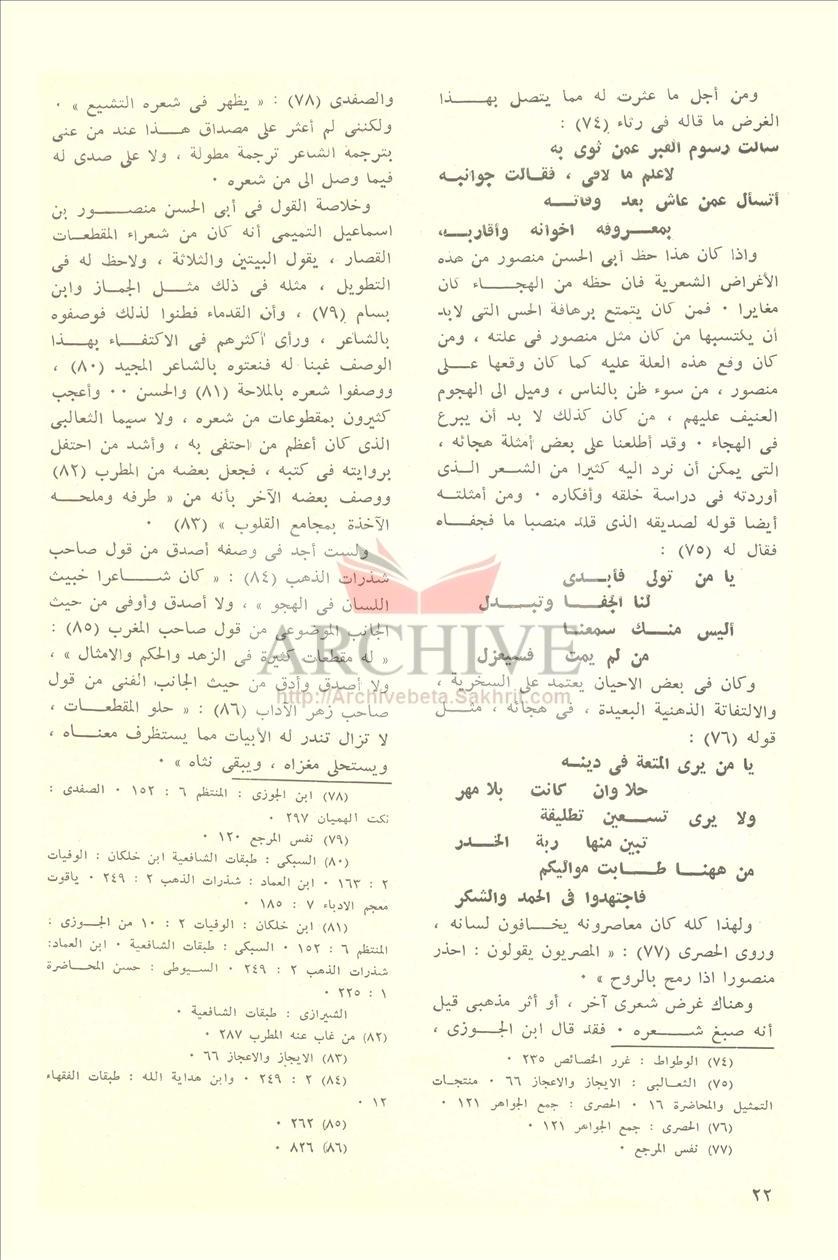 ومن أجل ما عثرت له مما يتصل بهـــذا
الغرض ما قاله فى رثاء (٧٤) :
سالت رسوم القبر عمن ثوى به
لاعلم ما لاقى ، فقـالت جوانبـه
أتسأل عمن عاش بعد وفاتـــه
بمعـــروفه اخوانه وأقاربـــه،
واذا كان هذا حظ أبى الحسن منصور من هذه
الأغراض الشعرية فان حظه من الهجـــاء كان
مغايرا ٠ فمن كان يتمتع برهافة الحس التى لابد
أن يكتسبها من كان مثل منصور فى علته ، ومن
كان وقع هذه العلة عليه كما كان وقعها عـــلى
منصور ، من سوء ظن بالناس ، وميل الى الهجوم
العنيف عليهم ، من كان كذلك لا بد أن يبرع
فى الهجاء ٠ وقد أطلعنا على بعض أمثلة هجائه ،
التى يمكن أن نرد اليه كثيرا من الشعـر الـذى
أوردته فى دراسة خلقه وأفكاره ٠ ومن أمثلتـه
أيضا قوله لصديقه الذى قلد منصبا ما فجفـاه
فقال له (٧٥) :
يا من تولى فأبـــدى
لنا الجفـــا وتبـــدل
أليس منـــك سمعنـا
من لم يمت فسيعزل
وكان فى بعض الاحيان يعتمد على السخرية ،
والالتفاتة الذهنية البعيدة ، فى هجائه ، مثـــل
قوله (٧٦) :
يا من يرى المتعة فى دينـه
حلا وان كانت بلا مهر
ولا يرى تســـعين تطليقة
تبين منها ربة الخـــدر
من ههنـــا طـــابت مواليكم
فاجتهدوا فى الحمد والشكر
ولهذا كله كان معاصرونه يخـــافون لسانه ،
وروى الحصرى (٧٧) : « المصريون يقولون : احذر
منصورا اذا رمح بالروح » ٠
وهناك غرض شعرى آخر ، أو أثر مذهبى قيل
أنه صبغ شـــعره ٠ فقد قال ابن الجـــوزى ،
(٧٤) الوطواط : غرر الخصائص ٢٣٥ ٠
(٧٥) الثعـالبى : الايجاز والاعجاز ٦٦ ٠ منتجات
التمثيل والمحاضرة ١٦ ٠ الحصرى : جمع الجواهر ١٢١ ٠
(٧٦) الحصرى : جمع الجواهر ١٢١ ٠
(٧٧) نفس المرجع ٠
والصفدى (٧٨) : « يظهر فى شعره التشيع » ٠
ولكننى لم أعثر على مصداق هـــذا عند من عنى
بترجمة الشاعر ترجمة مطولة ، ولا على صدى له
فيما وصل الى من شعره ٠
وخلاصة القول فى أبى الحسن منصـــور بن
اسماعيل التميمى أنه كان من شعراء المقطعـات
القصار ، يقول البيتين والثلاثة ، ولاحظ له فى
التطويل ، مثله فى ذلك مثـــل الجماز وابن
بسام (٧٩) ، وأن القدماء فطنوا لذلك فوصفوه
بالشاعر ، ورأى أكثرهم فى الاكتفـــاء بهـــذا
الوصف غبنا له فنعتوه بالشاعر المجيد (٨٠) ،
ووصفوا شعره بالملاحة (٨١) والحسن ٠٠ وأعجب
كثيرون بمقطوعات من شعره ، ولا سيما الثعالبى
الذى كان أعظم من احتفى به ، وأشد من احتفل
بروايته فى كتبه ، فجعل بعضه من المطرب (٨٢)
ووصف بعضه الآخر بأنه من « طرفه وملحـــه
الآخذة بمجامع القلوب » (٨٣) ٠
ولست أجد فى وصفه أصدق من قول صاحب
شذرات الذهب (٨٤) : « كان شـــاعرا خبيث
اللسان فى الهجو » ، ولا أصدق وأوفى من حيث
الجانب الموضوعى من قول صاحب المغرب (٨٥) :
« له مقطعات كثيرة فى الزهد والحكم والامثال » ،
ولا أصدق وأدق من حيث الجانب الفنى من قول
صاحب زهر الآداب (٨٦) : « حلو المقطعـات ،
لا تزال تندر له الأبيات مما يستظرف معنـــاه ،
ويستحلى مغزاه ، ويبقى نثاه » ٠
(٧٨) ابن الجوزى : المنتظم ٦ : ١٥٢ ٠ الصفدى :
نكت الهميان ٢٩٧ ٠
(٧٩) نفس المرجع ١٢٠ ٠
(٨٠) السبكى : طبقات الشافعية ابن خلكان : الوفيات
٢ : ١٦٣ ٠ ابن العماد : شذرات الذهب ٢ : ٢٤٩ ٠ ياقوت
معجم الادباء ٧ : ١٨٥ ٠
(٨١) ابن خلكان : الوفيات ٢ : ١٠ من الجـــوزى :
المنتظم ٦ : ١٥٢ ٠ السبكى : طبقات الشافعية ٠ ابن العماد:
شذرات الذهب ٢ : ٢٤٩ ٠ السـيوطى : حسن المحـاضرة
١ : ٢٢٥ ٠
الشيرازى : طبقات الشافعية ٠
(٨٢) من غاب عنه المطرب ٢٨٧ ٠
(٨٣) الايجاز والاعجاز ٦٦ ٠
(٨٤) ٢ : ٢٤٩ ٠ وابن هداية الله : طبقات الفقهاء
١٢ ٠
(٨٥) ٢٦٢ ٠
(٨٦) ٨٢٦ ٠
ARCHIVE
http://Archivebeta.Sakhrit.com
٢٢